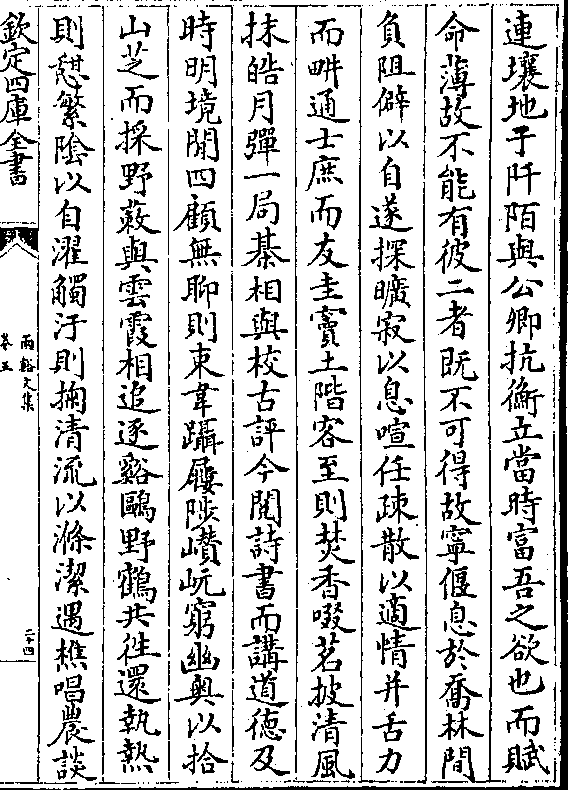 連壤地于阡陌與公卿抗衡立當時富吾之欲也而賦
命薄故不能有彼二者既不可得故寧偃息於喬林間
負阻僻以自遂探曠寂以息喧任疎散以適情并舌力
而畊通士庶而友圭竇土階客至則焚香啜茗披清風
抹皓月彈一局棊相與校古評今閱詩書而講道德及
時明境閒四顧無聊則束韋躡屨陟巑岏窮幽奥以拾
山芝而採野蔌與雲霞相追逐谿鷗野鶴共徃還執熱
則憇繁陰以自濯觸汙則掬清流以滌潔遇樵唱農談
欽定四庫全書
兩谿文集
卷五
二十四